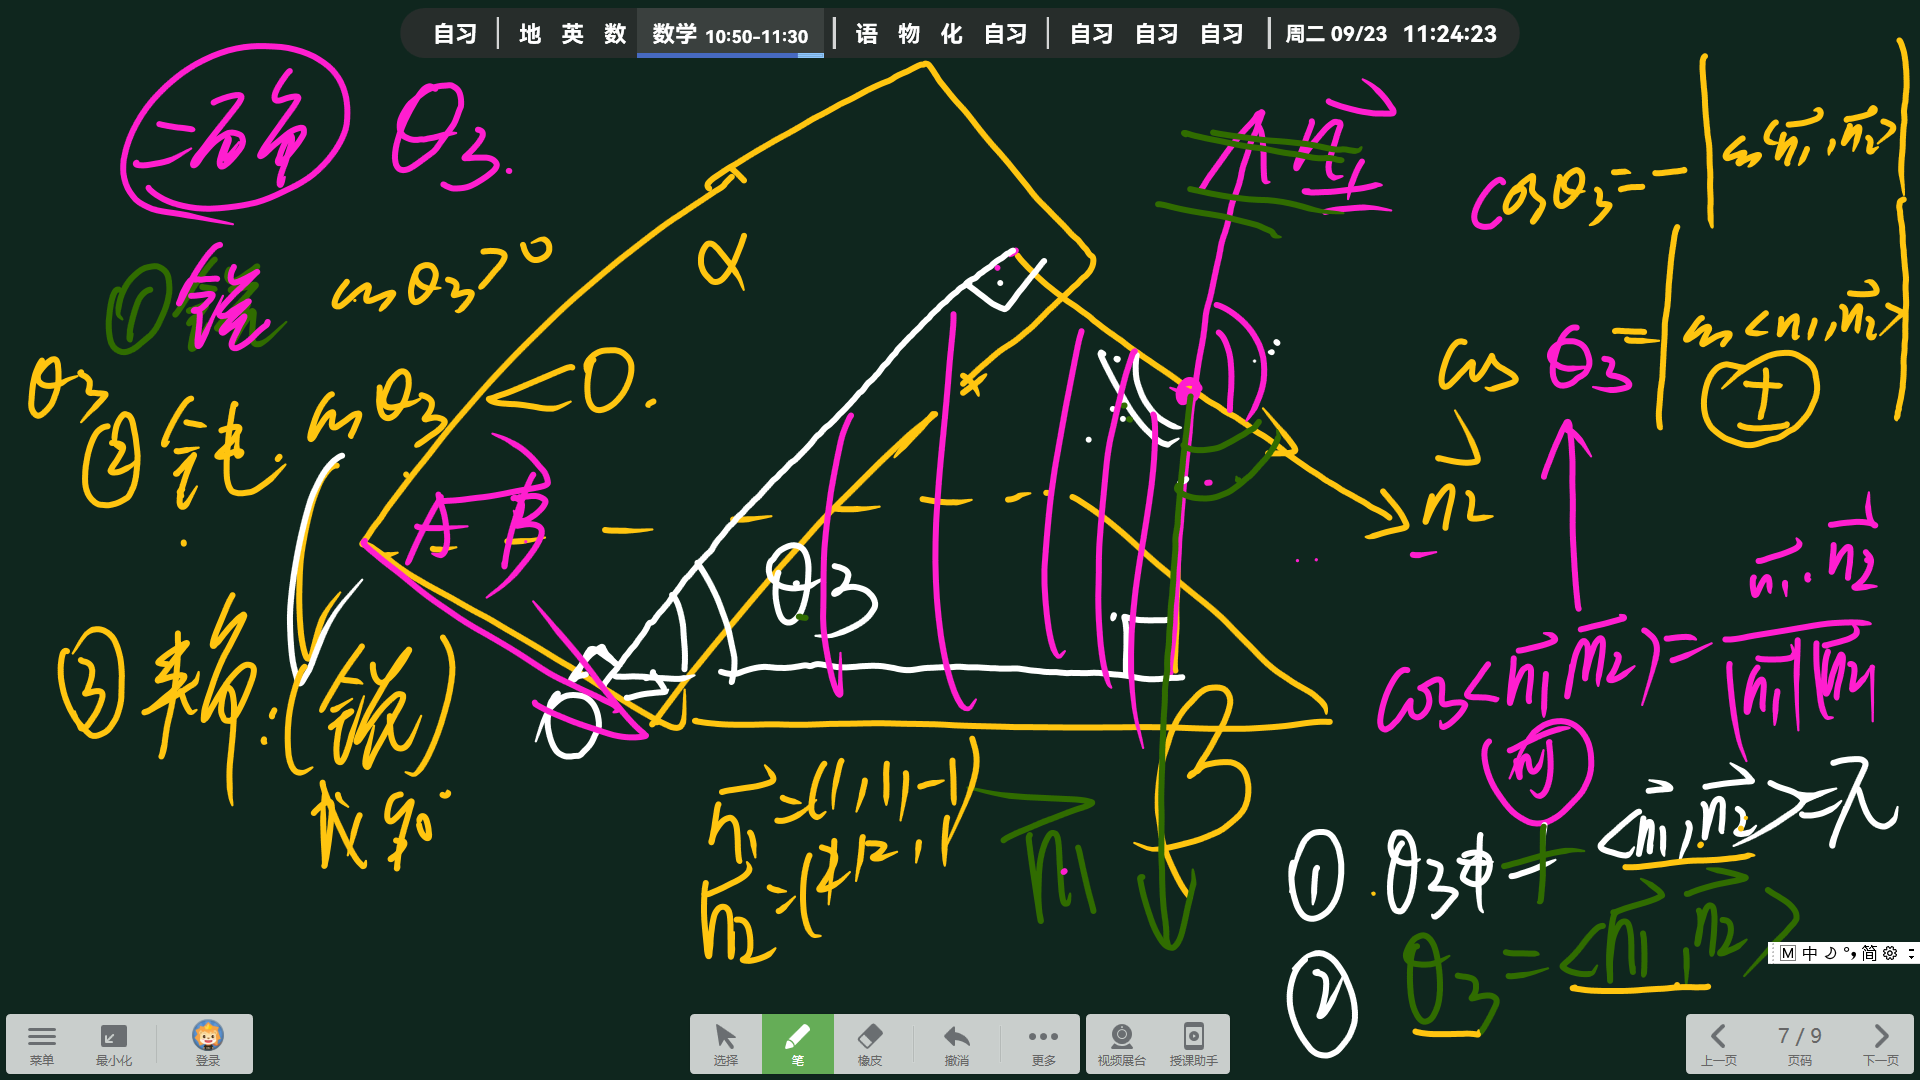 自习 | 地 英 数 数学 10:50-11:30 | 语 物 化 自习 | 自习 自习 自习 | 周二 09/23 11:24:23
二面角 θ3.
① 锐 cosθ3>0
θ3
② 钝. cosθ3 <0.
③ 求角: (锐)
α
AB
θ3
O
β
n1
n2
n1=(1,1,-1)
n1
cosθ3=-|cos<n1,n2>|
cos θ3=|cos<n1,n2>|
+
cos<n1,n2>=n1·n2/|n1||n2|
① θ3+<n1,n2>=π
② θ3=<n1,n2>
M 中 简
菜单 最小化 登录 选择 笔 橡皮 撤消 更多 视频展台 授课助手 上一页 7 / 9 页码 下一页